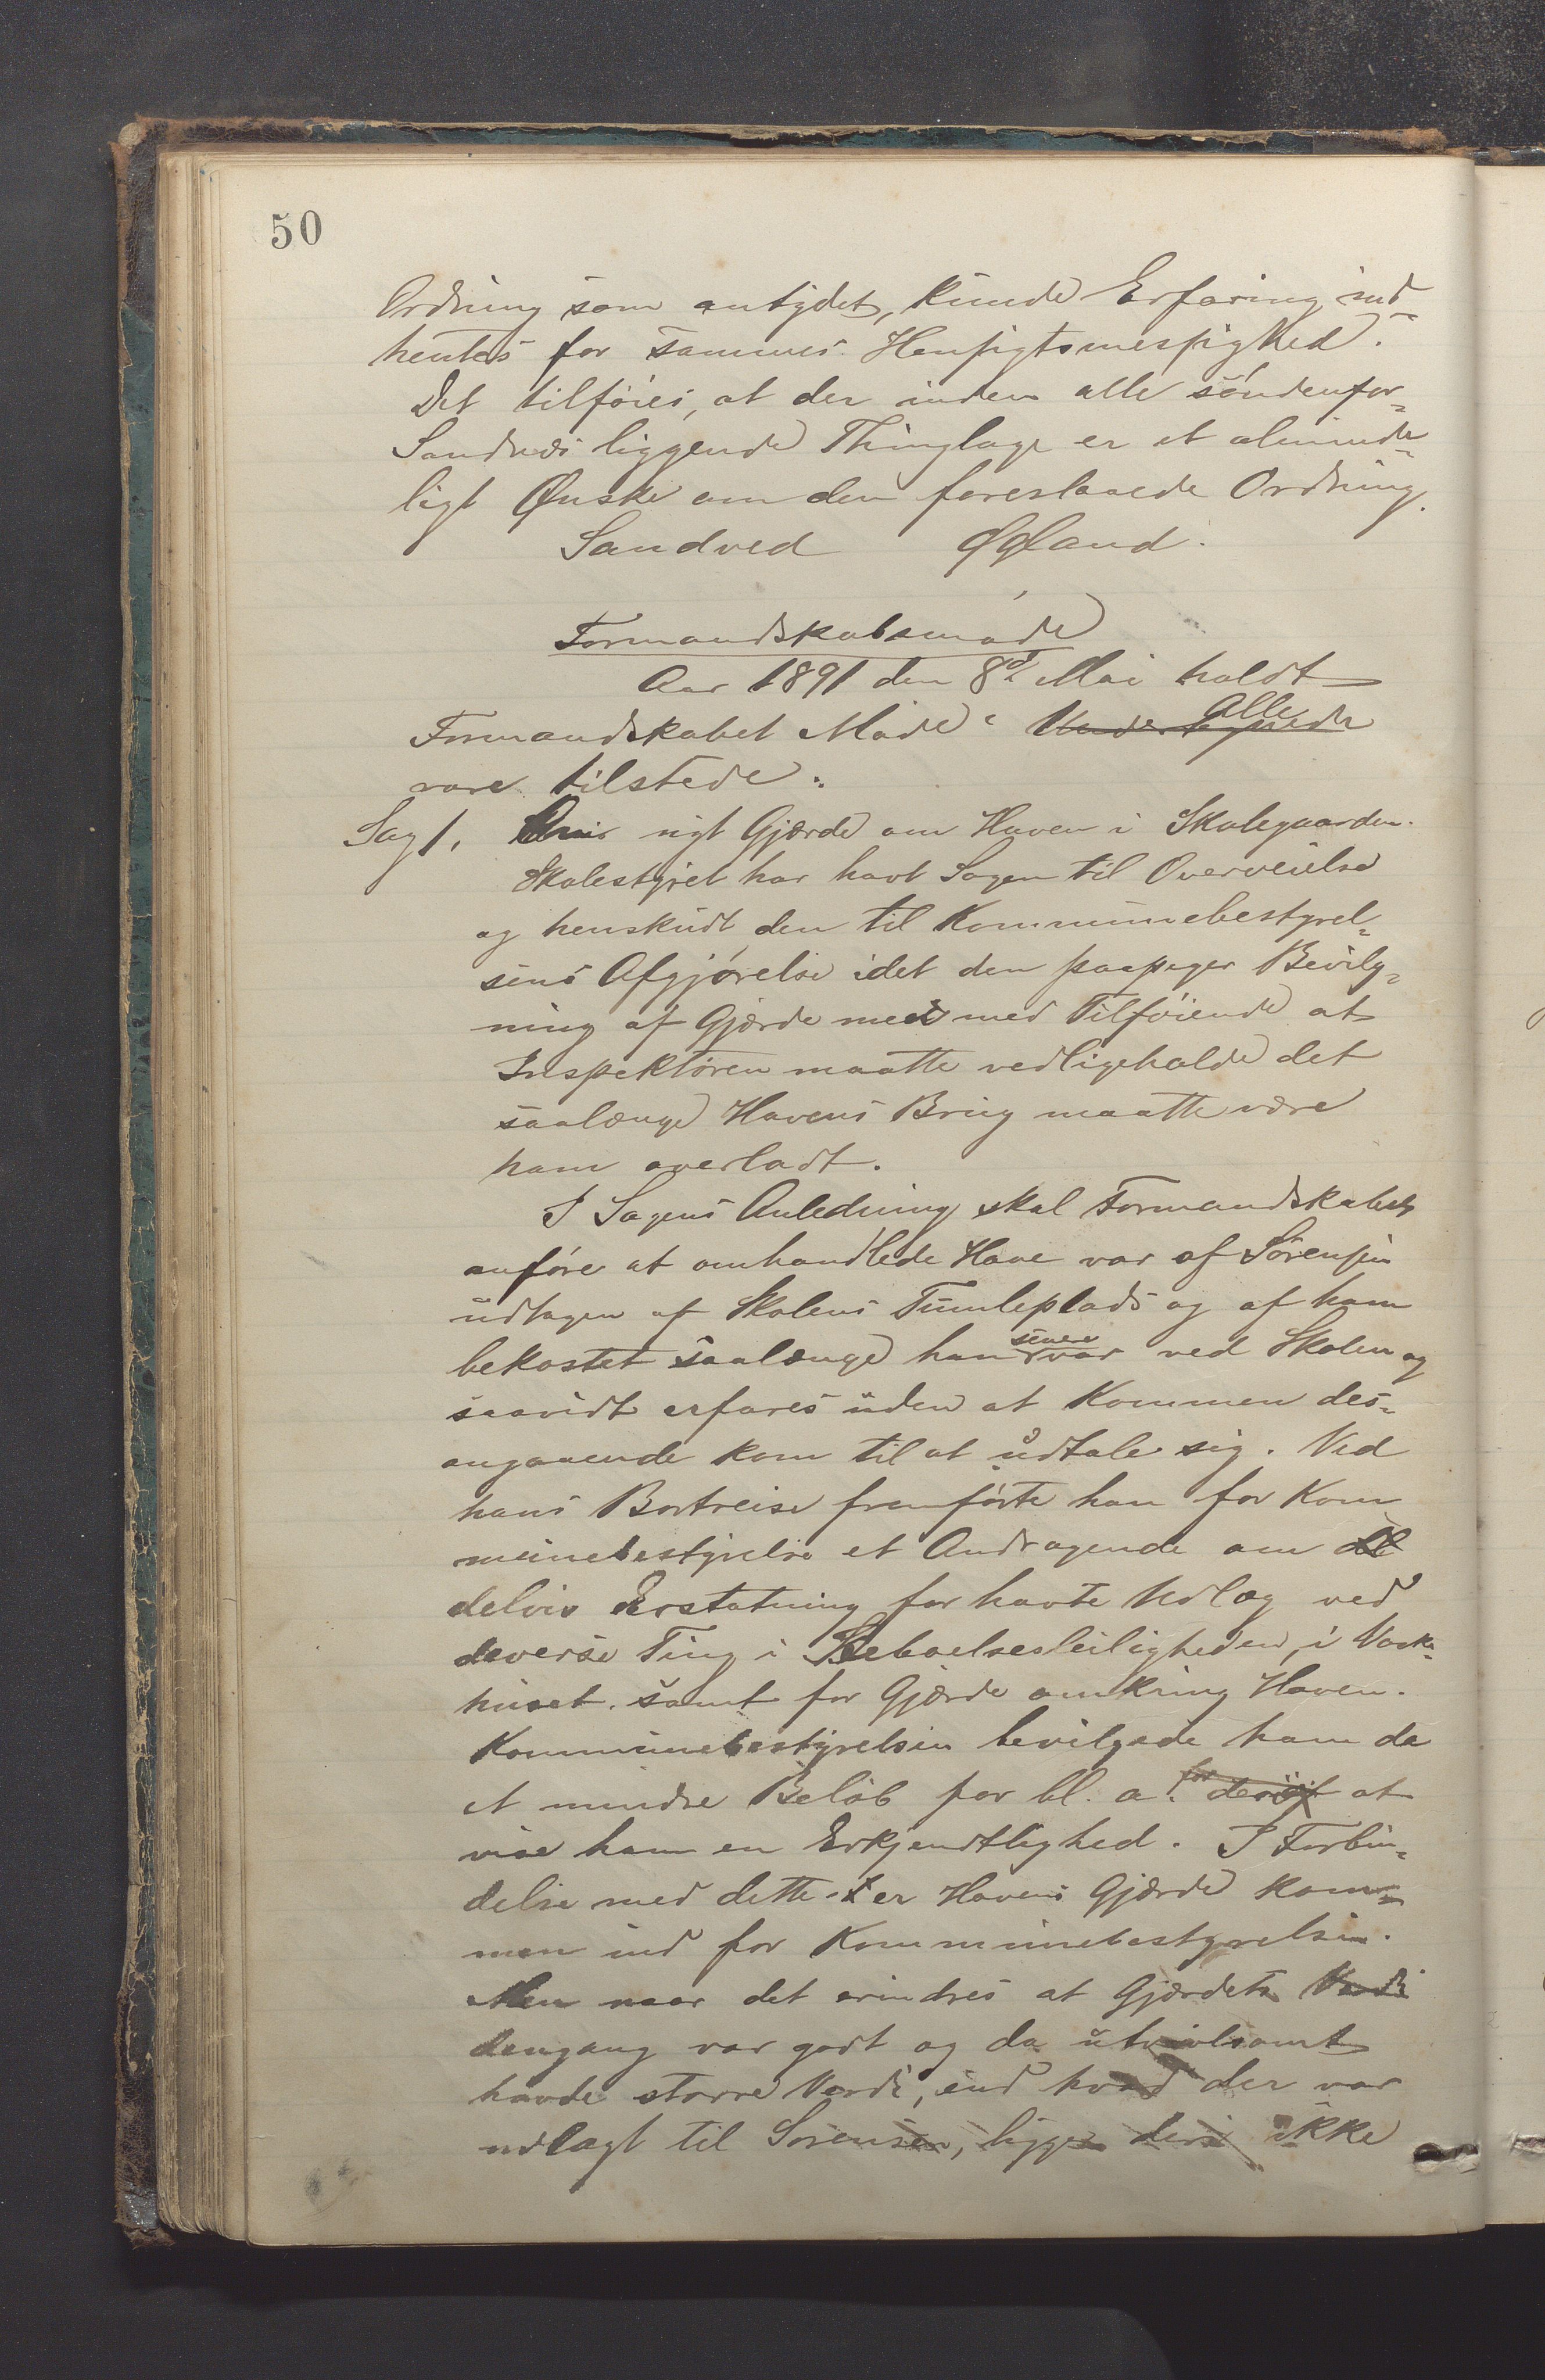 50
Ordning som antydet, kunde Erfaring ind-
hentes for sammes Hensigtsmessighed.
Det tilføies, at der inden alle søndenfor-
Sandnes liggende Thinglage er et alminde-
ligt Ønske om den foreslaaede Ordning.
Sandved Øgland.
Formandskabsmøde
Aar 1891 den 8de Mai holdt
Formandskabet Møde. Undertegnede Alle
vare tilstede.
Sag 1. nyt Gjærde om Haven i Skolegaarden.
Skolestyret har havt Sagen til Overveielse
og henskudt den til Kommunebestyrel-
sens Afgjørelse idet den paapeger Bevilg-
ning af Gjærde med med Tilføiende at
Inspektøren maatte vedligeholde det
saalænge Havens Brug maatte være
ham overladt.
I Sagens Anledning skal Formandskabet
anføre at omhandlede Have var af Sørensen
udtagen af Skolens Tumleplads og af ham
bekostet saalænge han senere var ved Skolen og
saavidt erfares uden at Kommen des-
angaaende kom til at udtale sig. Ved
hans Bortreise fremførte han for Kom
munebestyrelse et Andragende om del
delvis Erstatning for havte Udlæg ved
deverse Ting i Beboelsesleiligheden, i Vask-
huset samt for Gjærde omkring Haven.
Kommunebestyrelsen bevilgede ham da
et mindre Beløb for bl. a. for at
vise ham en Erkjendtlighed. I Forbin-
delse med dette er Havens Gjærde kom-
men ind for Kommunebestyrelsen.
Men naar det erindres at Gjærdets Værdi
dengang var godt og da utvivlsomt
havde større Værdi, end hvad der var
udlagt til Sørensen, ligger deri ikke